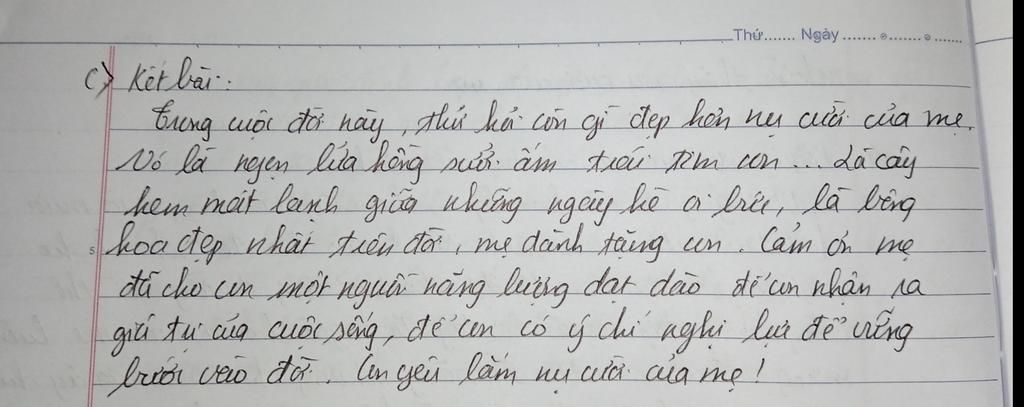 Thứ....... Ngày.......
c) Kết bài:
Trong cuộc đời này, thử hỏi còn gì đẹp hơn nụ cười của mẹ.
Nó là ngọn lửa hồng sưởi ấm trái tim con... Là cây
kem mát lạnh giữa những ngày hè oi bức, là bông
hoa đẹp nhất trên đời, mẹ dành tặng con. Cảm ơn mẹ
đã cho con một nguồn năng lượng dạt dào để con nhận ra
giá trị của cuộc sống, để con có ý chí nghị lực để vững
bước vào đời. Con yêu lắm nụ cười của mẹ!